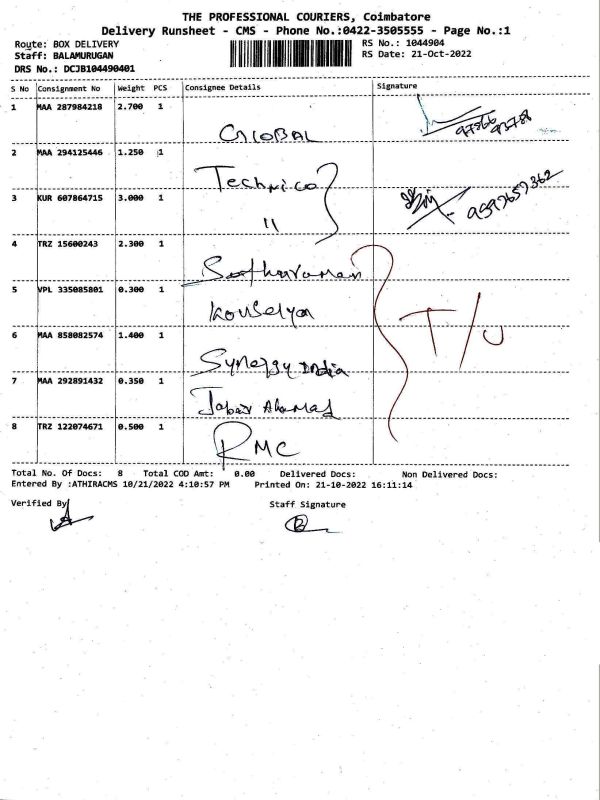 THE PROFESSIONAL COURIERS, Coimbatore
Delivery Runsheet - CMS - Phone No.:0422-3505555 - Page No.:1
Route: BOX DELIVERY
Staff: BALAMURUGAN
DRS No.: DCJB104490401
RS No.: 1044904
RS Date: 21-Oct-2022
S No Consignment No Weight PCS Consignee Details Signature
1 MAA 287984218 2.700 1 GLOBAL 97866 93788
2 MAA 294125446 1.250 1 Technico
3 KUR 607864715 3.000 1 11 9597657362
4 TRZ 15600243 2.300 1
5 VPL 335085801 0.300 1 Kouselya T/U
6 MAA 858082574 1.400 1 Synergy India
7 MAA 292891432 0.350 1 Jabir Ahamad
8 TRZ 122074671 0.500 1 RMC
Total No. Of Docs: 8 Total COD Amt: 0.00 Delivered Docs: Non Delivered Docs:
Entered By :ATHIRACMS 10/21/2022 4:10:57 PM Printed On: 21-10-2022 16:11:14
Verified By
Staff Signature